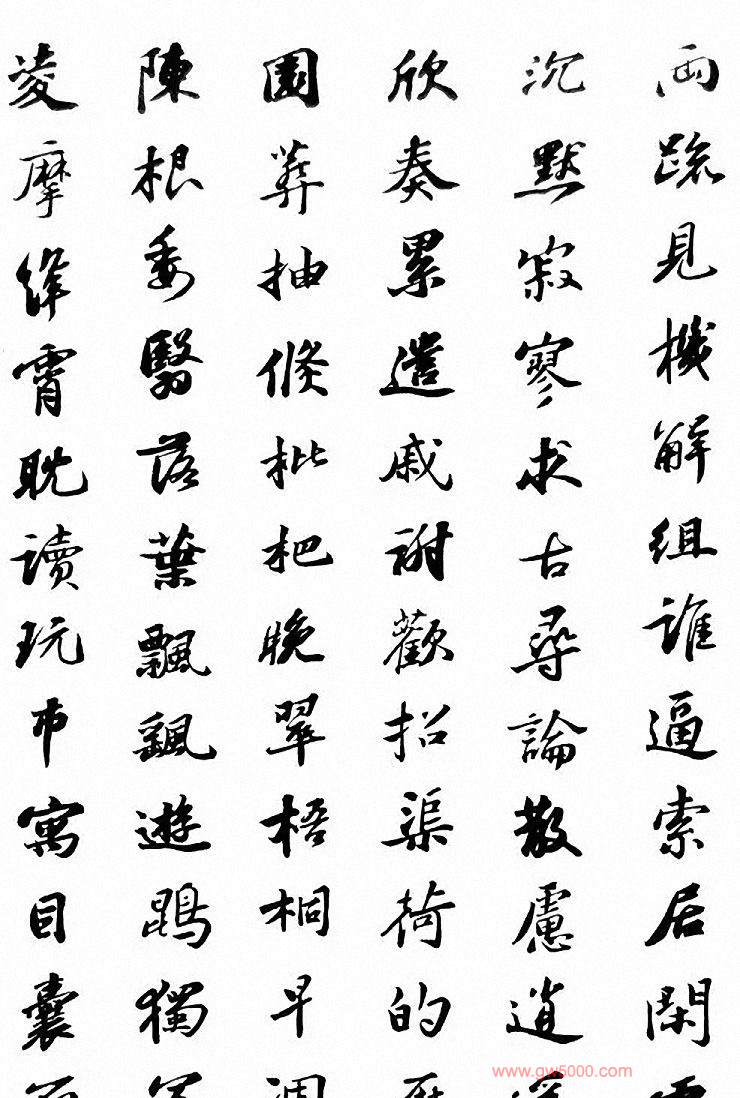 兩疏見機解組誰逼索居閑
沉默寂寥求古尋論散慮逍
欣奏累遣戚謝歡招渠荷的
園莽抽條枇杷晚翠梧桐早
陳根委翳落葉飄颻遊鵾獨
凌摩絳霄耽讀玩市寓目囊
www.gw5000.com